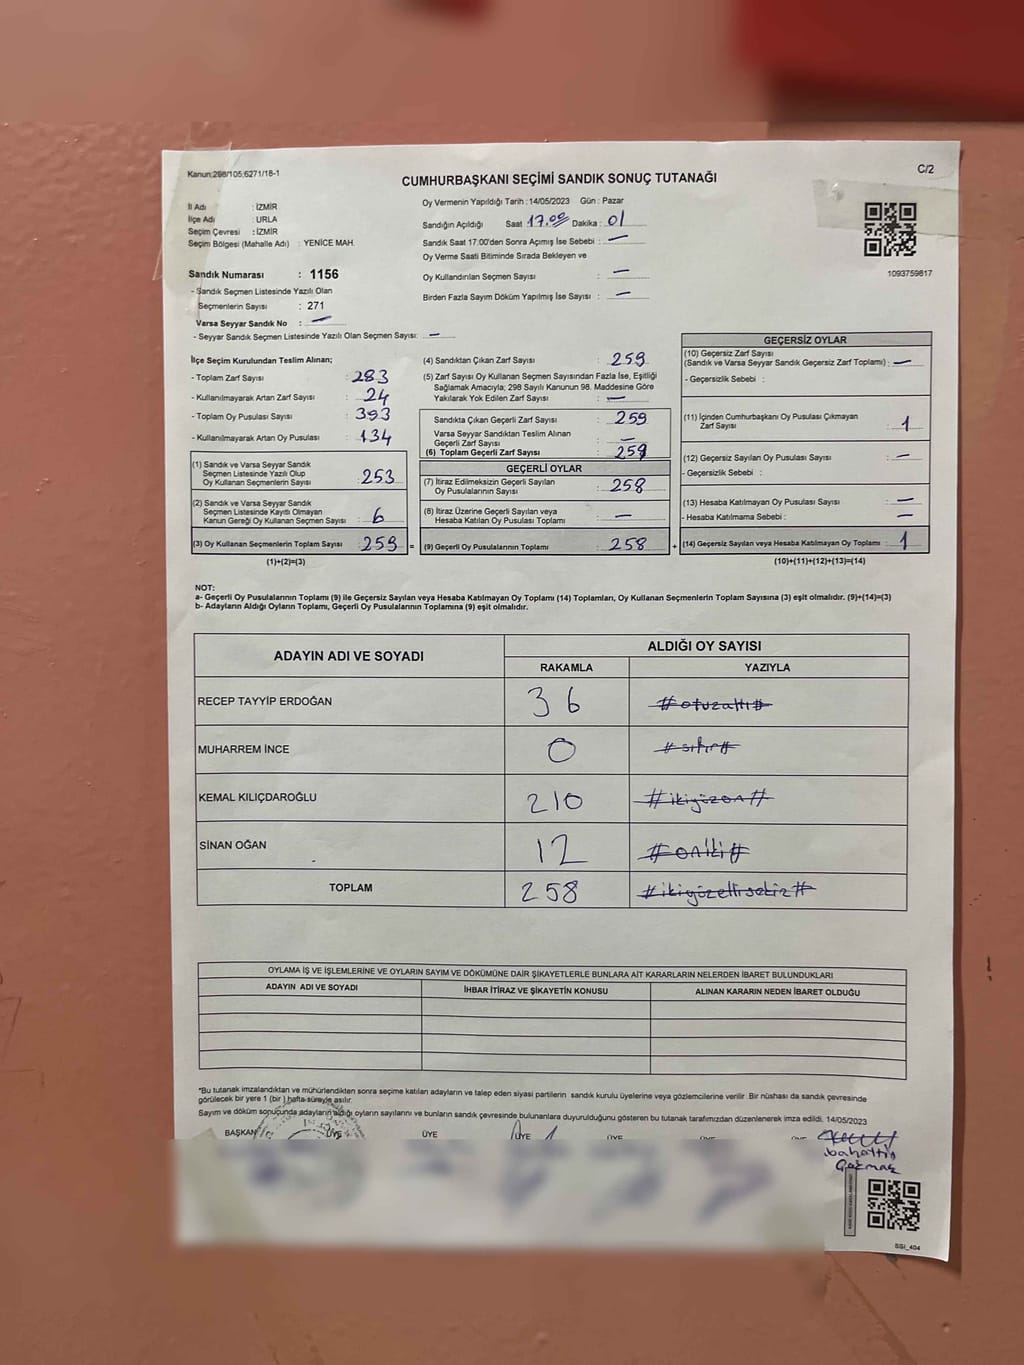 Kanun:298/105;6271/18-1
C/2
CUMHURBAŞKANI SEÇİMİ SANDIK SONUÇ TUTANAĞI
İl Adı : İZMİR
İlçe Adı : URLA
Seçim Çevresi : İZMİR
Seçim Bölgesi (Mahalle Adı) : YENİCE MAH.
Sandık Numarası : 1156
- Sandık Seçmen Listesinde Yazılı Olan
Seçmenlerin Sayısı : 271
Varsa Seyyar Sandık No : —
- Seyyar Sandık Seçmen Listesinde Yazılı Olan Seçmen Sayısı: —
Oy Vermenin Yapıldığı Tarih : 14/05/2023 Gün : Pazar
Sandığın Açıldığı Saat : 17.00 Dakika : 01
Sandık Saat 17.00'den Sonra Açımış İse Sebebi : —
Oy Verme Saati Bitiminde Sırada Bekleyen ve
Oy Kullandırılan Seçmen Sayısı : —
Birden Fazla Sayım Döküm Yapılmış İse Sayısı : —
1093759817
İlçe Seçim Kurulundan Teslim Alınan;
- Toplam Zarf Sayısı : 283
- Kullanılmayarak Artan Zarf Sayısı : 24
- Toplam Oy Pusulası Sayısı : 393
- Kullanılmayarak Artan Oy Pusulası : 134
(1) Sandık ve Varsa Seyyar Sandık
Seçmen Listesinde Yazılı Olup
Oy Kullanan Seçmenlerin Sayısı : 253
(2) Sandık ve Varsa Seyyar Sandık
Seçmen Listesinde Kayıtlı Olmayan
Kanun Gereği Oy Kullanan Seçmen Sayısı : 6
(3) Oy Kullanan Seçmenlerin Toplam Sayısı : 259
(1)+(2)=(3)
(4) Sandıktan Çıkan Zarf Sayısı : 259
(5) Zarf Sayısı Oy Kullanan Seçmen Sayısından Fazla İse, Eşitliği
Sağlamak Amacıyla; 298 Sayılı Kanunun 98. Maddesine Göre
Yakılarak Yok Edilen Zarf Sayısı : —
Sandıkta Çıkan Geçerli Zarf Sayısı : 259
Varsa Seyyar Sandıktan Teslim Alınan
Geçerli Zarf Sayısı : —
(6) Toplam Geçerli Zarf Sayısı : 259
GEÇERLİ OYLAR
(7) İtiraz Edilmeksizin Geçerli Sayılan
Oy Pusulalarının Sayısı : 258
(8) İtiraz Üzerine Geçerli Sayılan veya
Hesaba Katılan Oy Pusulası Toplamı : —
= (9) Geçerli Oy Pusulalarının Toplamı : 258 +
GEÇERSİZ OYLAR
(10) Geçersiz Zarf Sayısı
(Sandık ve Varsa Seyyar Sandık Geçersiz Zarf Toplamı) : —
- Geçersizlik Sebebi :
(11) İçinden Cumhurbaşkanı Oy Pusulası Çıkmayan
Zarf Sayısı : 1
(12) Geçersiz Sayılan Oy Pusulası Sayısı : —
- Geçersizlik Sebebi :
(13) Hesaba Katılmayan Oy Pusulası Sayısı : —
- Hesaba Katılmama Sebebi : —
(14) Geçersiz Sayılan veya Hesaba Katılmayan Oy Toplamı : 1
(10)+(11)+(12)+(13)=(14)
NOT:
a- Geçerli Oy Pusulalarının Toplamı (9) ile Geçersiz Sayılan veya Hesaba Katılmayan Oy Toplamı (14) Toplamları, Oy Kullanan Seçmenlerin Toplam Sayısına (3) eşit olmalıdır. (9)+(14)=(3)
b- Adayların Aldığı Oyların Toplamı, Geçerli Oy Pusulalarının Toplamına (9) eşit olmalıdır.
ADAYIN ADI VE SOYADI ALDIĞI OY SAYISI
RAKAMLA YAZIYLA
RECEP TAYYİP ERDOĞAN 36 #otuzaltı#
MUHARREM İNCE 0 #sıfır#
KEMAL KILIÇDAROĞLU 210 #ikiyüzon#
SİNAN OĞAN 12 #oniki#
TOPLAM 258 #ikiyüzellisekiz#
OYLAMA İŞ VE İŞLEMLERİNE VE OYLARIN SAYIM VE DÖKÜMÜNE DAİR ŞİKAYETLERLE BUNLARA AİT KARARLARIN NELERDEN İBARET BULUNDUKLARI
ADAYIN ADI VE SOYADI İHBAR İTİRAZ VE ŞİKAYETİN KONUSU ALINAN KARARIN NEDEN İBARET OLDUĞU
*Bu tutanak imzalandıktan ve mühürlendikten sonra seçime katılan adayların ve talep eden siyasi partilerin sandık kurulu üyelerine veya gözlemcilerine verilir. Bir nüshası da sandık çevresinde
görülecek bir yere 1 (bir ) hafta süreyle asılır.
Sayım ve döküm sonucunda adayların aldığı oyların sayılarını ve bunların sandık çevresinde bulunanlara duyurulduğunu gösteren bu tutanak tarafımızdan düzenlenerek imza edildi. 14/05/2023
BAŞKAN ÜYE ÜYE ÜYE ÜYE
bahattin
SSI_404